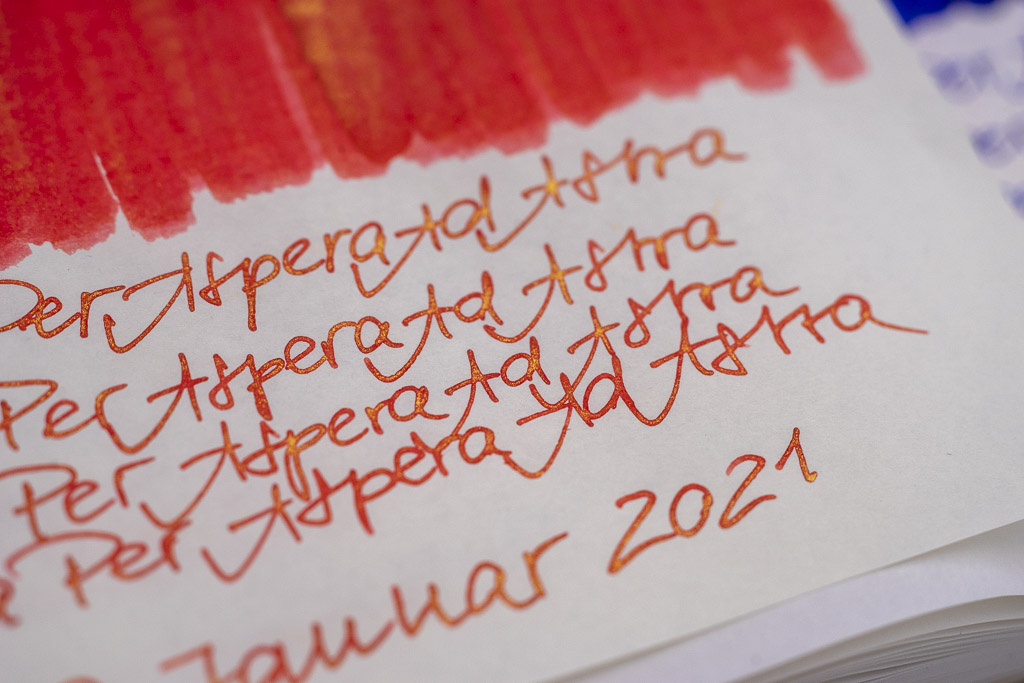 Per Aspera Ad Astra
Per Aspera Ad Astra
Per Aspera Ad Astra
Per Aspera Ad Astra
Januar 2021